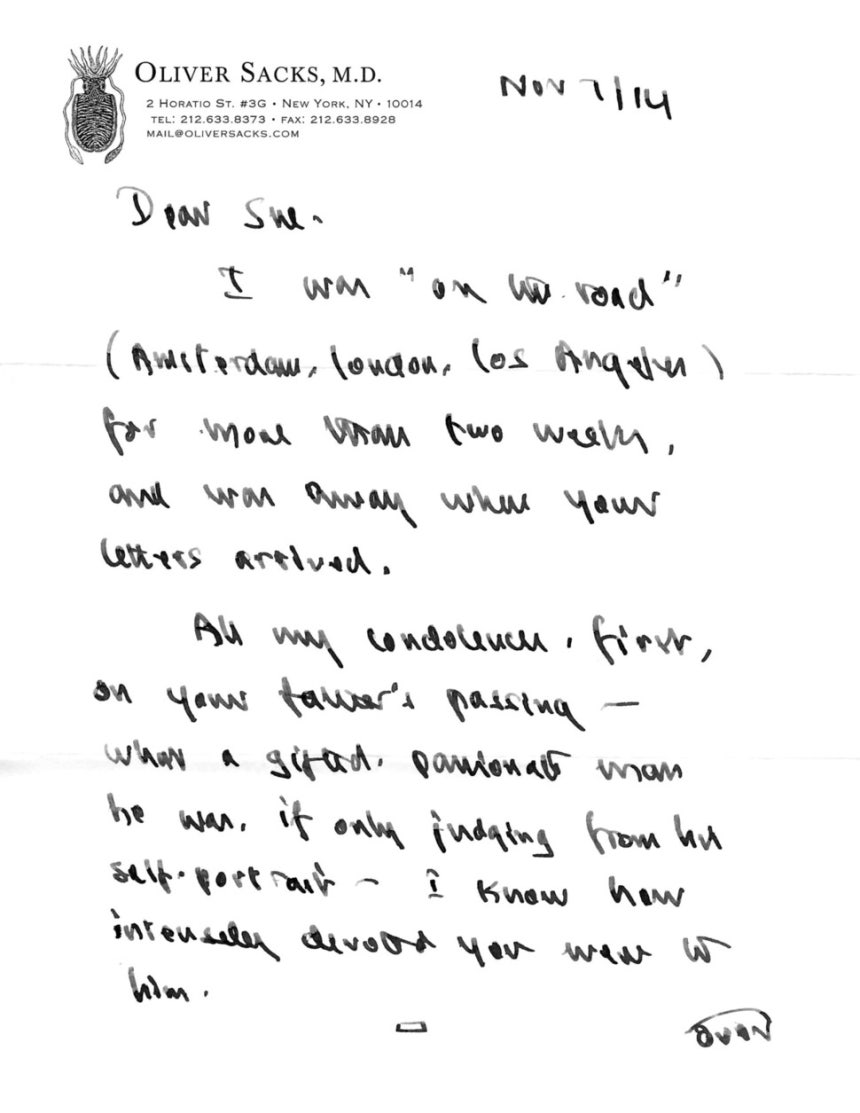 OLIVER SACKS, M.D.
2 HORATIO ST. #3G • NEW YORK, NY • 10014
TEL: 212.633.8373 • FAX: 212.633.8928
MAIL@OLIVERSACKS.COM
Nov 7/14
Dear Sue.
I was "on the road"
(Amsterdam, London, Los Angeles)
for more than two weeks,
and was away when your
letters arrived.
All my condolences, first,
on your father's passing —
what a gifted, passionate man
he was, if only judging from his
self-portrait – I know how
intensely devoted you were to
him.
over